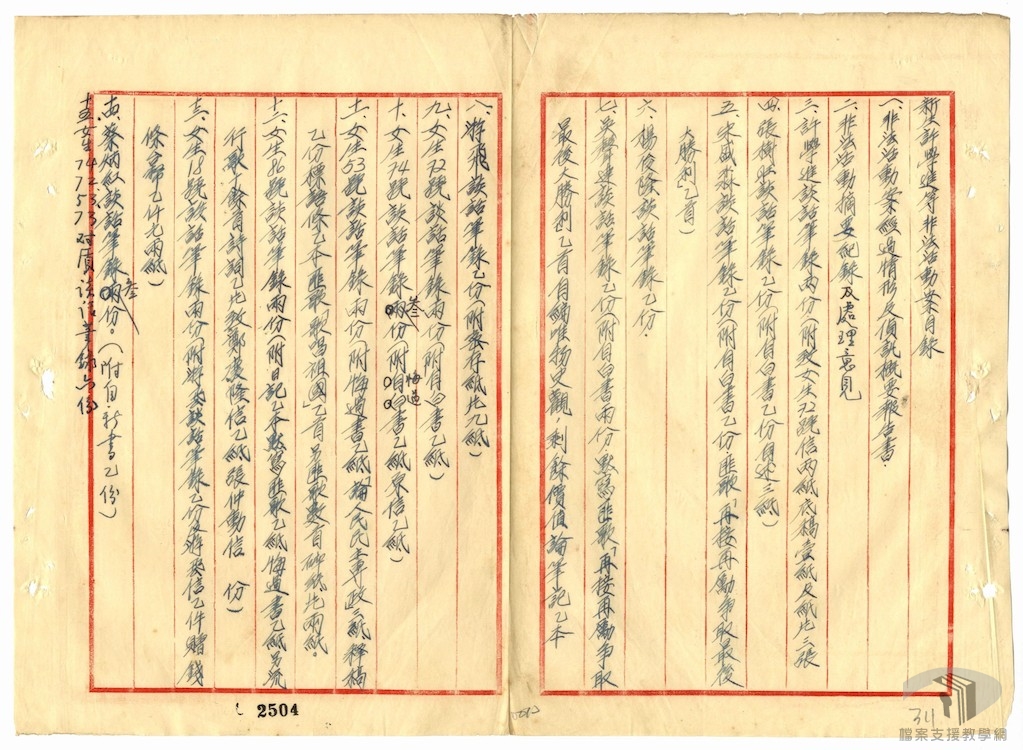 新生許學進等非法活動案目錄
一、非法活動案經過情形及偵訊概要報告書.
二、非法活動摘要紀錄及處理意見
三、許學進談話筆錄兩份(附致女生72號信兩紙底稿壹紙及紙片三張
四、張樹旺談話筆錄乙份(附自白書乙份自述三紙)
五、宋盛淼談話筆錄乙份(附自白書乙份匪歌「再接再勵爭取最後
大勝利」乙首)
六、楊俊隆談話筆錄乙份.
七、吳聲達談話筆錄乙份(附自白書兩份默寫匪歌「再接再勵爭取
最後大勝利乙首自編唯物史觀,剩餘價值論筆記乙本
八、游飛談話筆錄乙份(附發仔紙片乙紙)
九、女生72號談話筆錄兩份(附自白書乙紙)
十、女生74號談話筆錄叁份(附悔過書乙紙原信乙紙)
十一、女生53號談話筆錄兩份(附悔過書乙紙「論人民民主專政」三紙釋稿
乙份標語條乙本匪歌「歌唱祖國」乙首另匪歌數首碎紙片兩紙.
十二、女生86號談話筆錄兩份(附日記乙本默寫匪歌乙紙悔過書乙紙另流
行歌 餘首詩詞乙片致鄭 信乙紙張仲動信 份)
十三、女生18號談話筆錄兩份(附游 談話筆錄乙份及游 信乙件賭錢
條命 乙件九兩紙)
十四、蔡炳紅談話筆錄叁份.(附自新書乙份)
十五、女生74 72 53 53 77 對質談話筆錄 份
2504
311
檔案支援教學網